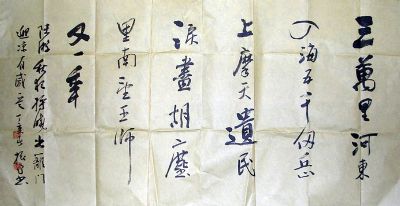 三萬里河東
入海五千仞岳
上摩天遺民
淚盡胡塵
里南望王師
又一年
陸游秋夜將曉出籬門
迎涼有感